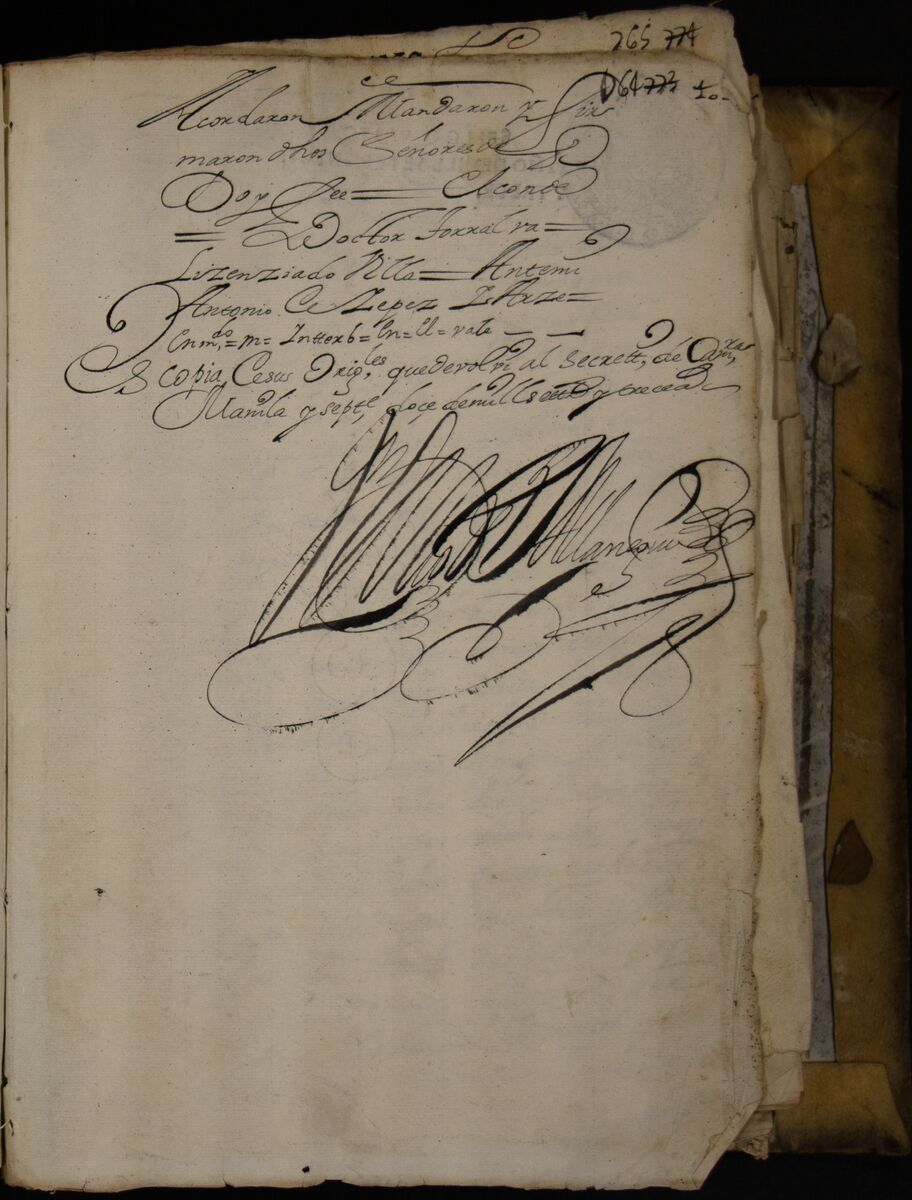 265 774
D64 773 10-
Acordaron Mandaron y fir
maron dhos Señores de
Doy fee = El conde
= Doctor Torralva =
Lizenziado Villa = Antemi
Antonio de Yepez y Arze =
En mdo = m = Intterb = en = el = vale — —
Es copia de sus Origles que devolvi al secrett de
Manila y septe doçe de mill sett y trece as